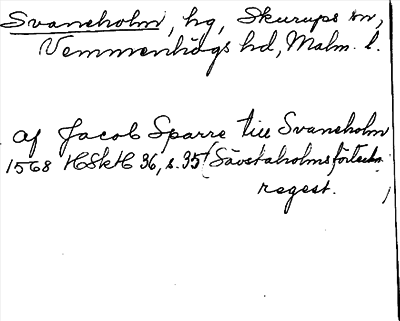 Svaneholm, hg, Skurups sn,
Vemmenhögs hd, Malm. l.
af Jacob Sparre till Svaneholm
1568 HSkH 36, s. 35 (Sävstaholms förteckn.
regest.)